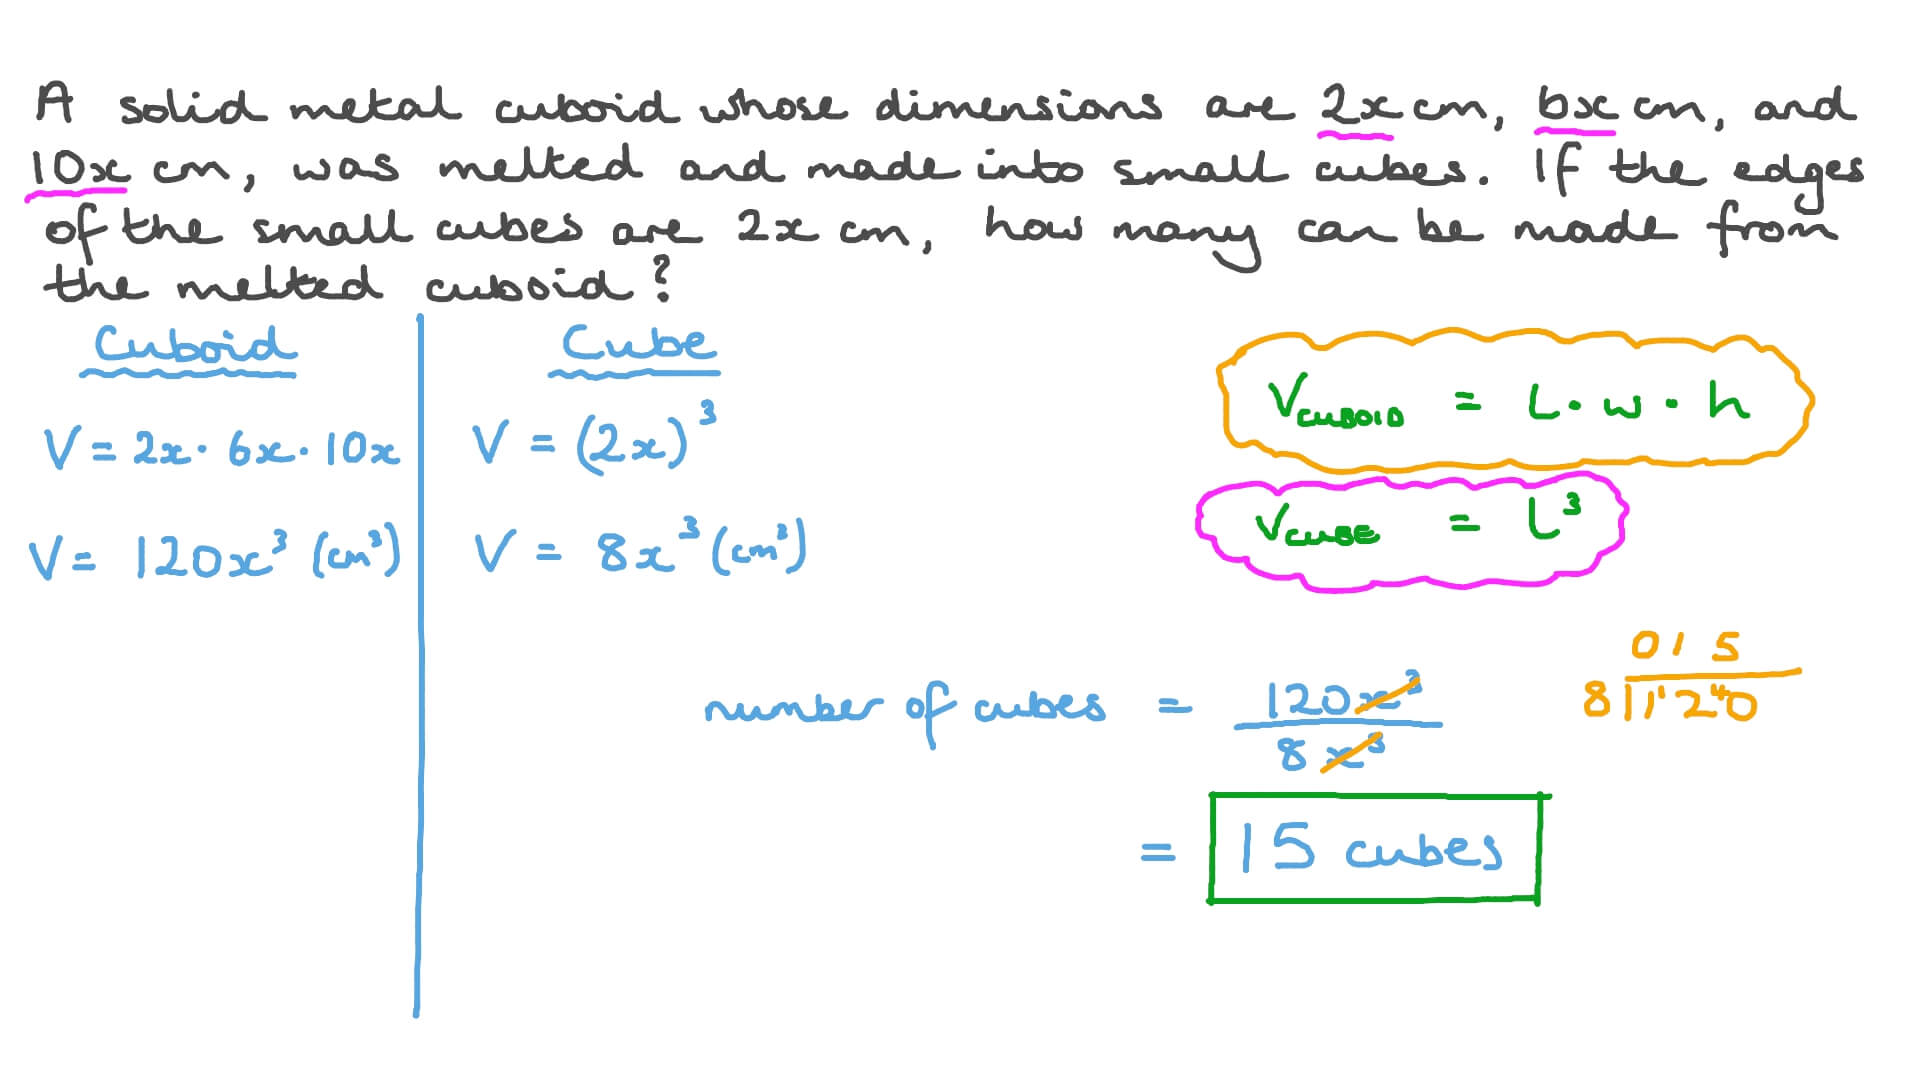 A solid metal cuboid whose dimensions are 2x cm, 6x cm, and
10x cm, was melted and made into small cubes. If the edges
of the small cubes are 2x cm, how many can be made from
the melted cuboid?
Cuboid
V = 2x · 6x · 10x
V = 120x³ (cm³)
Cube
V = (2x)³
V = 8x³ (cm³)
V CUBOID = L · w · h
V CUBE = L³
number of cubes = 120x³
8x³
= 15 cubes
0 1 5
8 1 ¹2 ⁴0